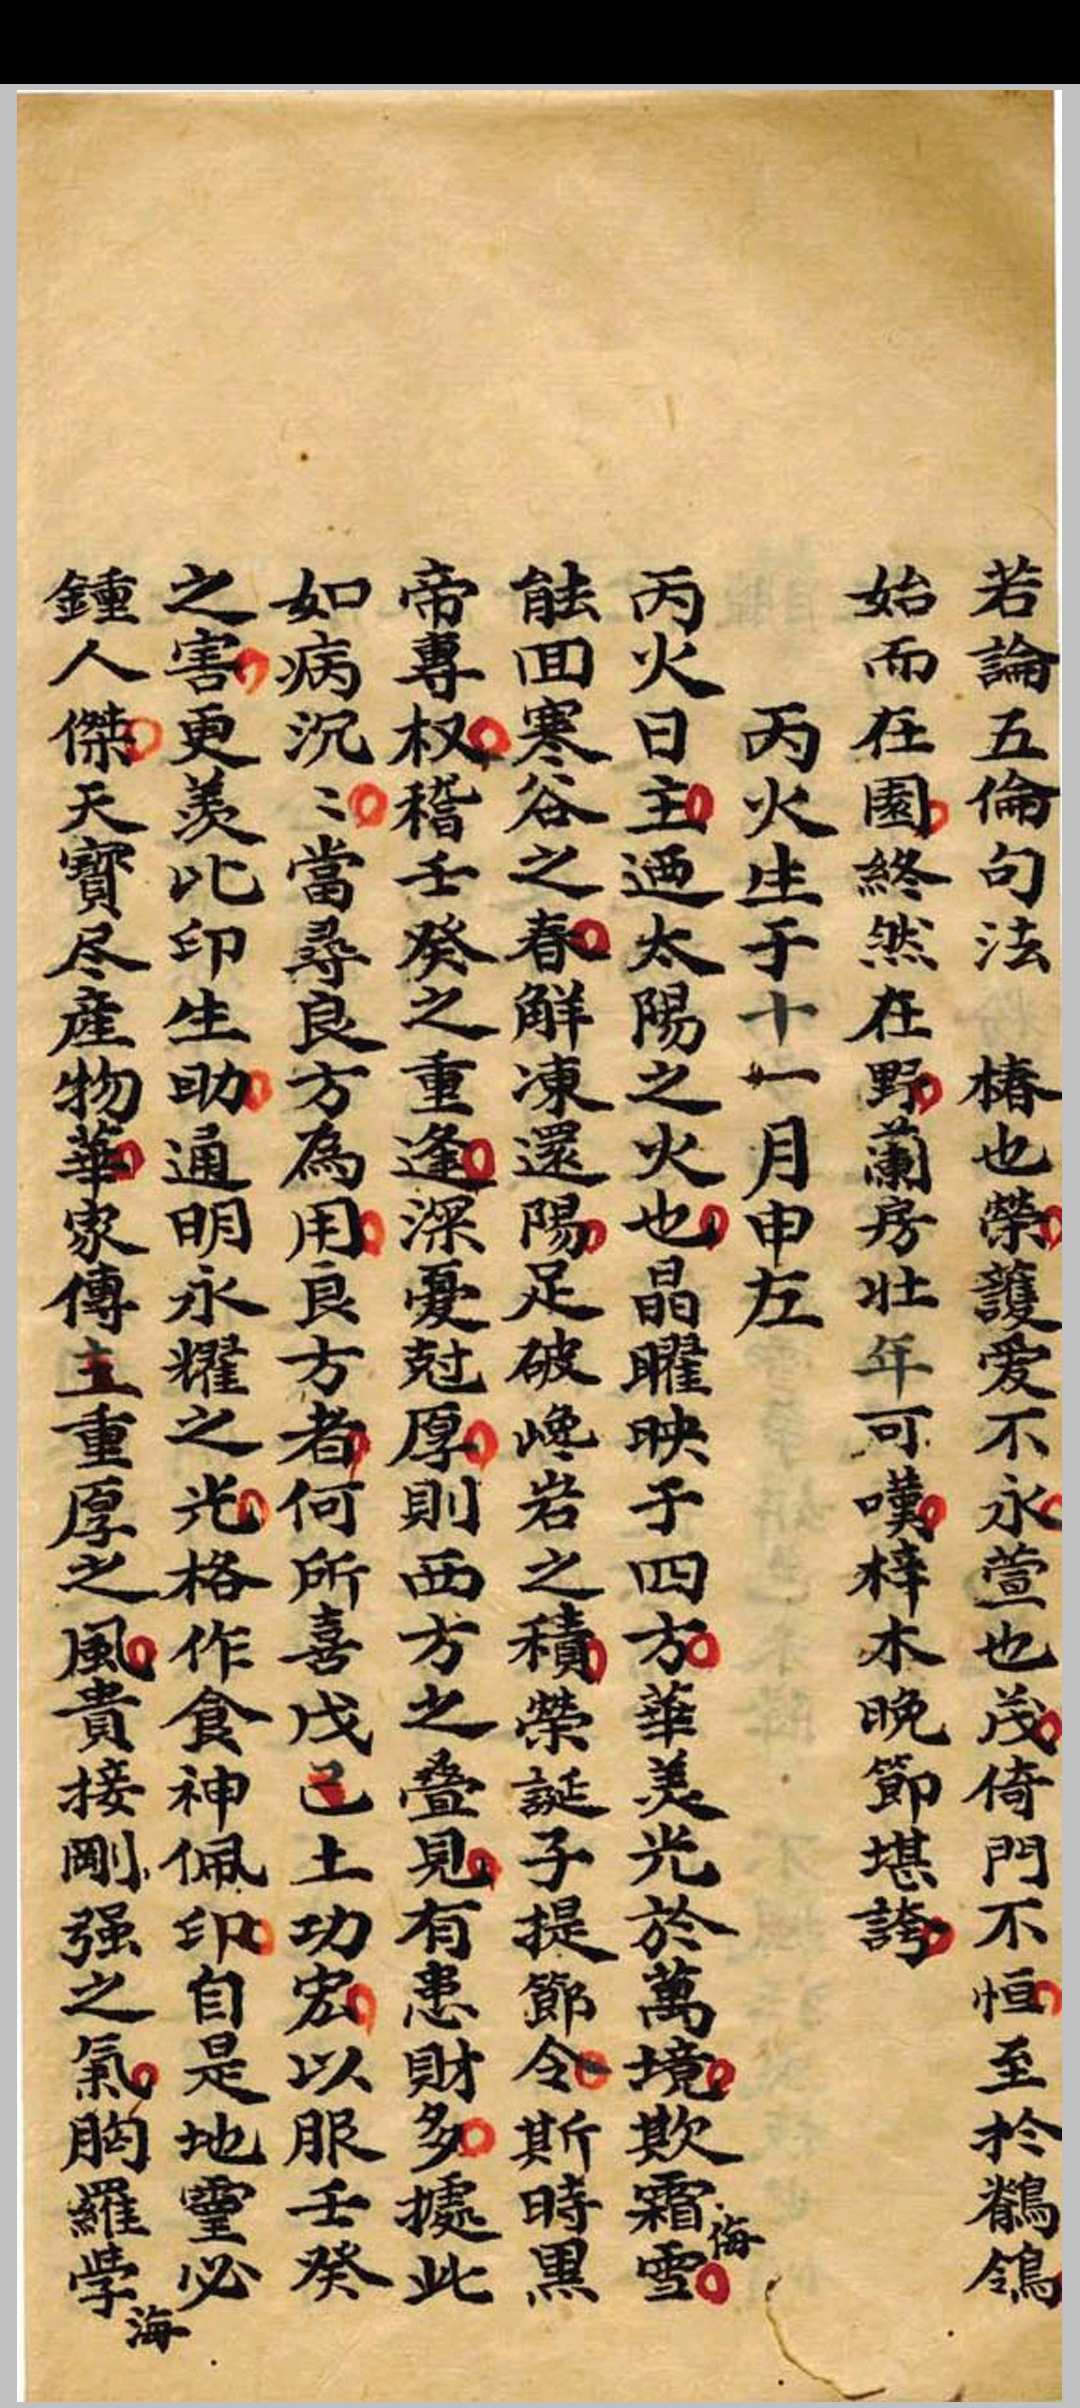 若論五倫句法　椿也榮護爱不永萱也茂倚門不恒至於鶺鴒
始而在園終然在野蘭房壮年可嘆梓木晚節堪誇
丙火生于十一月申左
丙火日主廼太陽之火也晶曜映于四方華美光於萬境欺霜侮雪
能囬寒谷之春解凍還陽足破巉岩之積榮誕子提節令斯時黒
帝專权稽壬癸之重逢深憂尅厚則西方之叠見有患財多據此
如病沉〻當尋良方為用良方者何所喜戊己土功宏以服壬癸
之害更羡比印生助通明永耀之光格作食神佩印自是地靈必
鍾人傑天寶尽産物華家傳主重厚之風貴接剛强之氣胸羅學海